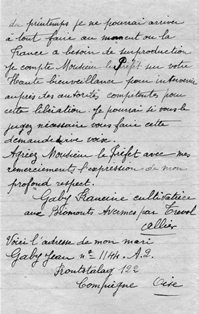 du printemps je ne pourrai arriver
à tout faire au moment ou la
France a besoin de surproduction
Je compte Monsieur le Préfet sur votre
Haute bienveillance pour intervenir
auprès des autorités compétentes pour
cette libération. Je pourrai si vous le
jugez nécessaire vous faire cette
demande de vive voix.
Agréez Monsieur le Préfet avec mes
remerciements l'expression de mon
profond respect.
Gaby Francine cultivatrice
aux Avermes par Trevol
Allier
Voici l'adresse de mon mari
Gaby Jean n° 1144. A.2.
Frontstalag 122
Compiègne Oise